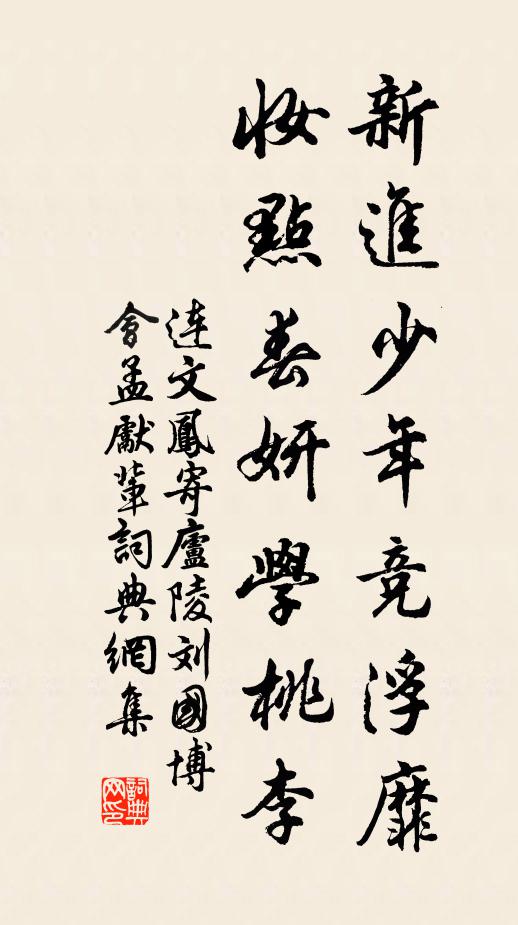 新進少年竞浮靡
妝點春妍學桃李
連文鳳寄廬陵刘國博
會孟獻輩詞典網集
詞典网印